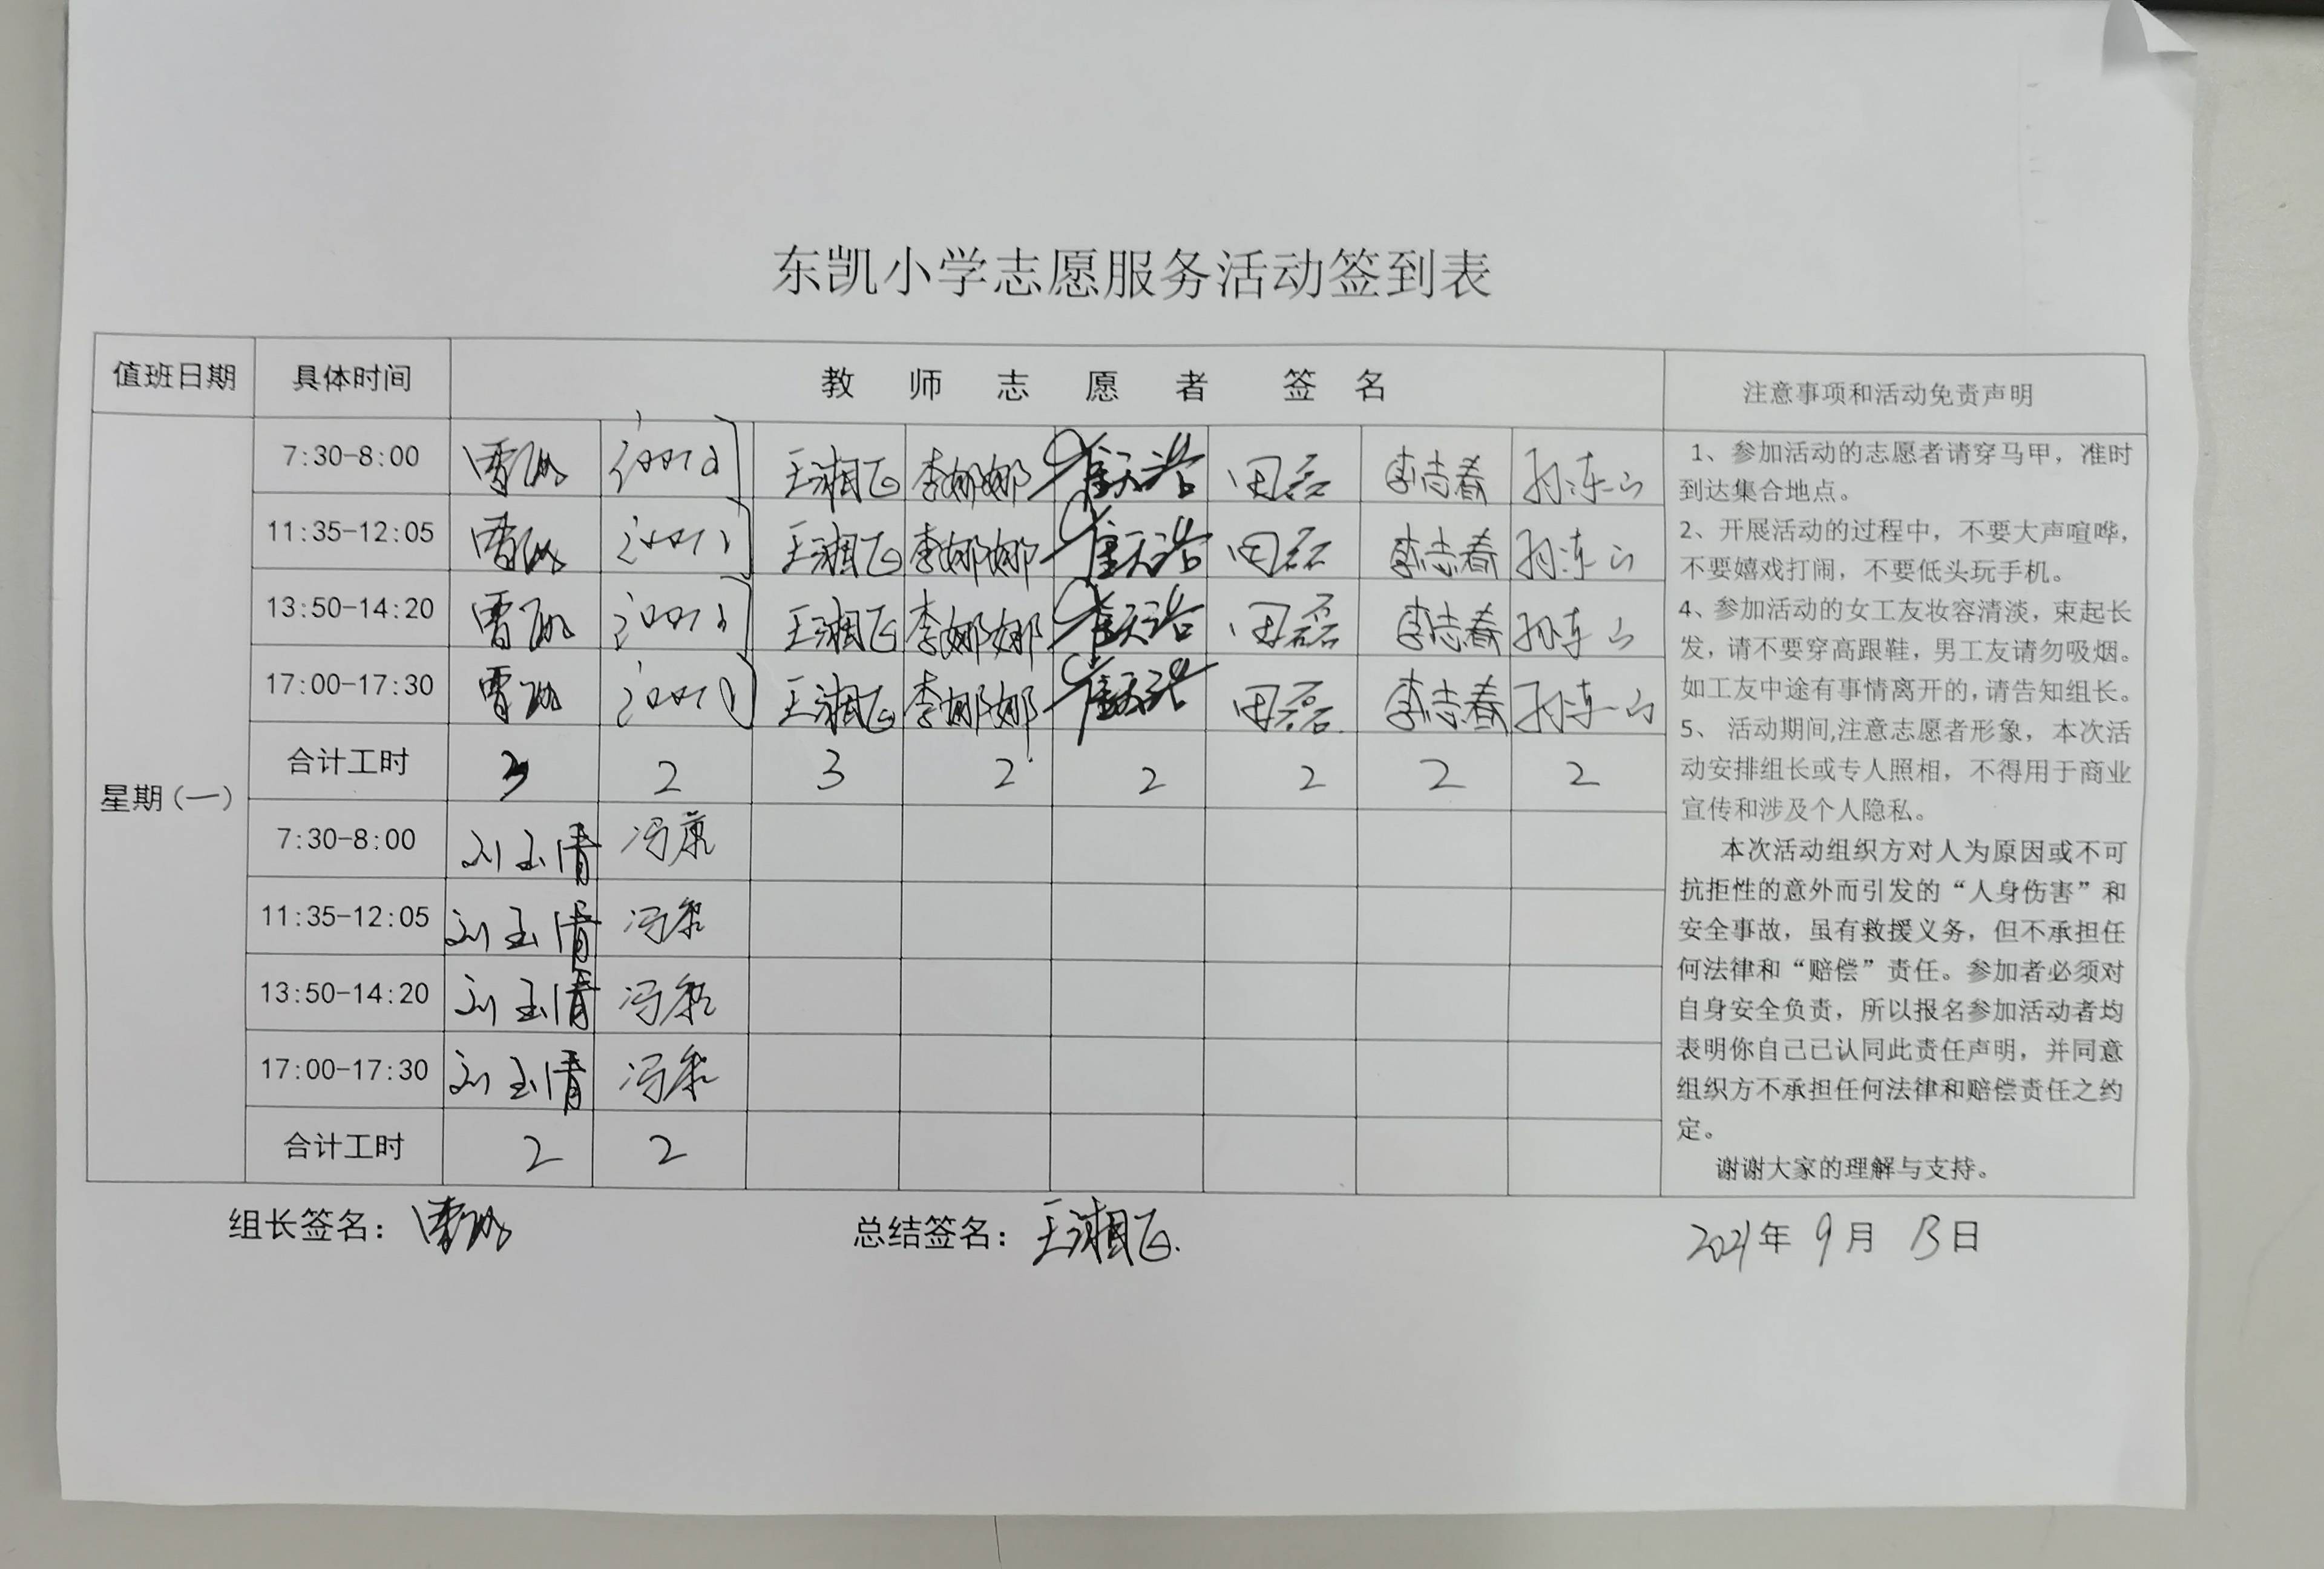 东凯小学志愿服务活动签到表
值班日期 具体时间 教师志愿者签名 注意事项和活动免责声明
星期(一)
7:30-8:00 王湘飞 李娜娜 崔天浩 田磊 李志春 孙东山
11:35-12:05 王湘飞 李娜娜 崔天浩 田磊 李志春 孙东山
13:50-14:20 王湘飞 李娜娜 崔天浩 田磊 李志春 孙东山
17:00-17:30 王湘飞 李娜娜 崔天浩 田磊 李志春 孙东山
合计工时 3 2 3 2 2 2 2 2
7:30-8:00 刘玉清 冯康
11:35-12:05 刘玉清 冯康
13:50-14:20 刘玉清 冯康
17:00-17:30 刘玉清 冯康
合计工时 2 2
1、参加活动的志愿者请穿马甲，准时
到达集合地点。
2、开展活动的过程中，不要大声喧哗，
不要嬉戏打闹，不要低头玩手机。
4、参加活动的女工友妆容清淡，束起长
发，请不要穿高跟鞋，男工友请勿吸烟。
如工友中途有事情离开的，请告知组长。
5、 活动期间,注意志愿者形象，本次活
动安排组长或专人照相，不得用于商业
宣传和涉及个人隐私。
本次活动组织方对人为原因或不可
抗拒性的意外而引发的“人身伤害”和
安全事故，虽有救援义务，但不承担任
何法律和“赔偿”责任。参加者必须对
自身安全负责，所以报名参加活动者均
表明你自己已认同此责任声明，并同意
组织方不承担任何法律和赔偿责任之约
定。
谢谢大家的理解与支持。
组长签名： 总结签名：王湘飞. 2021年 9月 13日